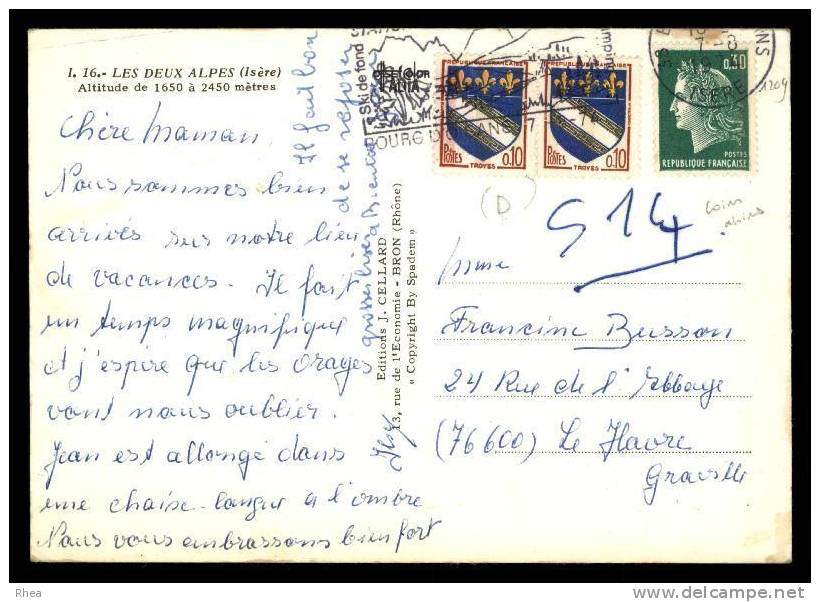 I. 16.- LES DEUX ALPES (Isère)
Altitude de 1650 à 2450 mètres
Chère Maman,
Nous sommes bien
arrivés sur notre lieu
de vacances. Il fait
un temps magnifique
et j'espère que les orages
vont nous oublier.
Jean est allongé dans
une chaise-longue a l'ombre
Nous vous embrassons bien fort
Il faut bon
de se reposer
grosses bises
a Bientot
Editions J. CELLARD
13, rue de l'Economie - BRON (Rhône)
« Copyright By Spadem »
Ski de fond
BOURG D'OISANS
ISÈRE
RÉPUBLIQUE FRANÇAISE
POSTES
0,10
TROYES
RÉPUBLIQUE FRANÇAISE
POSTES
0,10
TROYES
0,30
POSTES
REPUBLIQUE FRANÇAISE
1209
(D)
coins
abîmés
514
Mme
Francine Busson
24 Rue de l'Abbaye
(76600) Le Havre
Graville
Rhea
www.delcampe.net